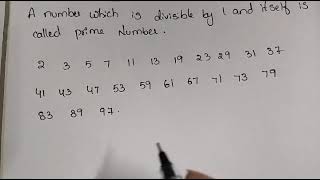 A number which is divisible by 1 and itself is
called prime Number.
2 3 5 7 11 13 19 23 29 31 37
41 43 47 53 59 61 67 71 73 79
83 89 97.